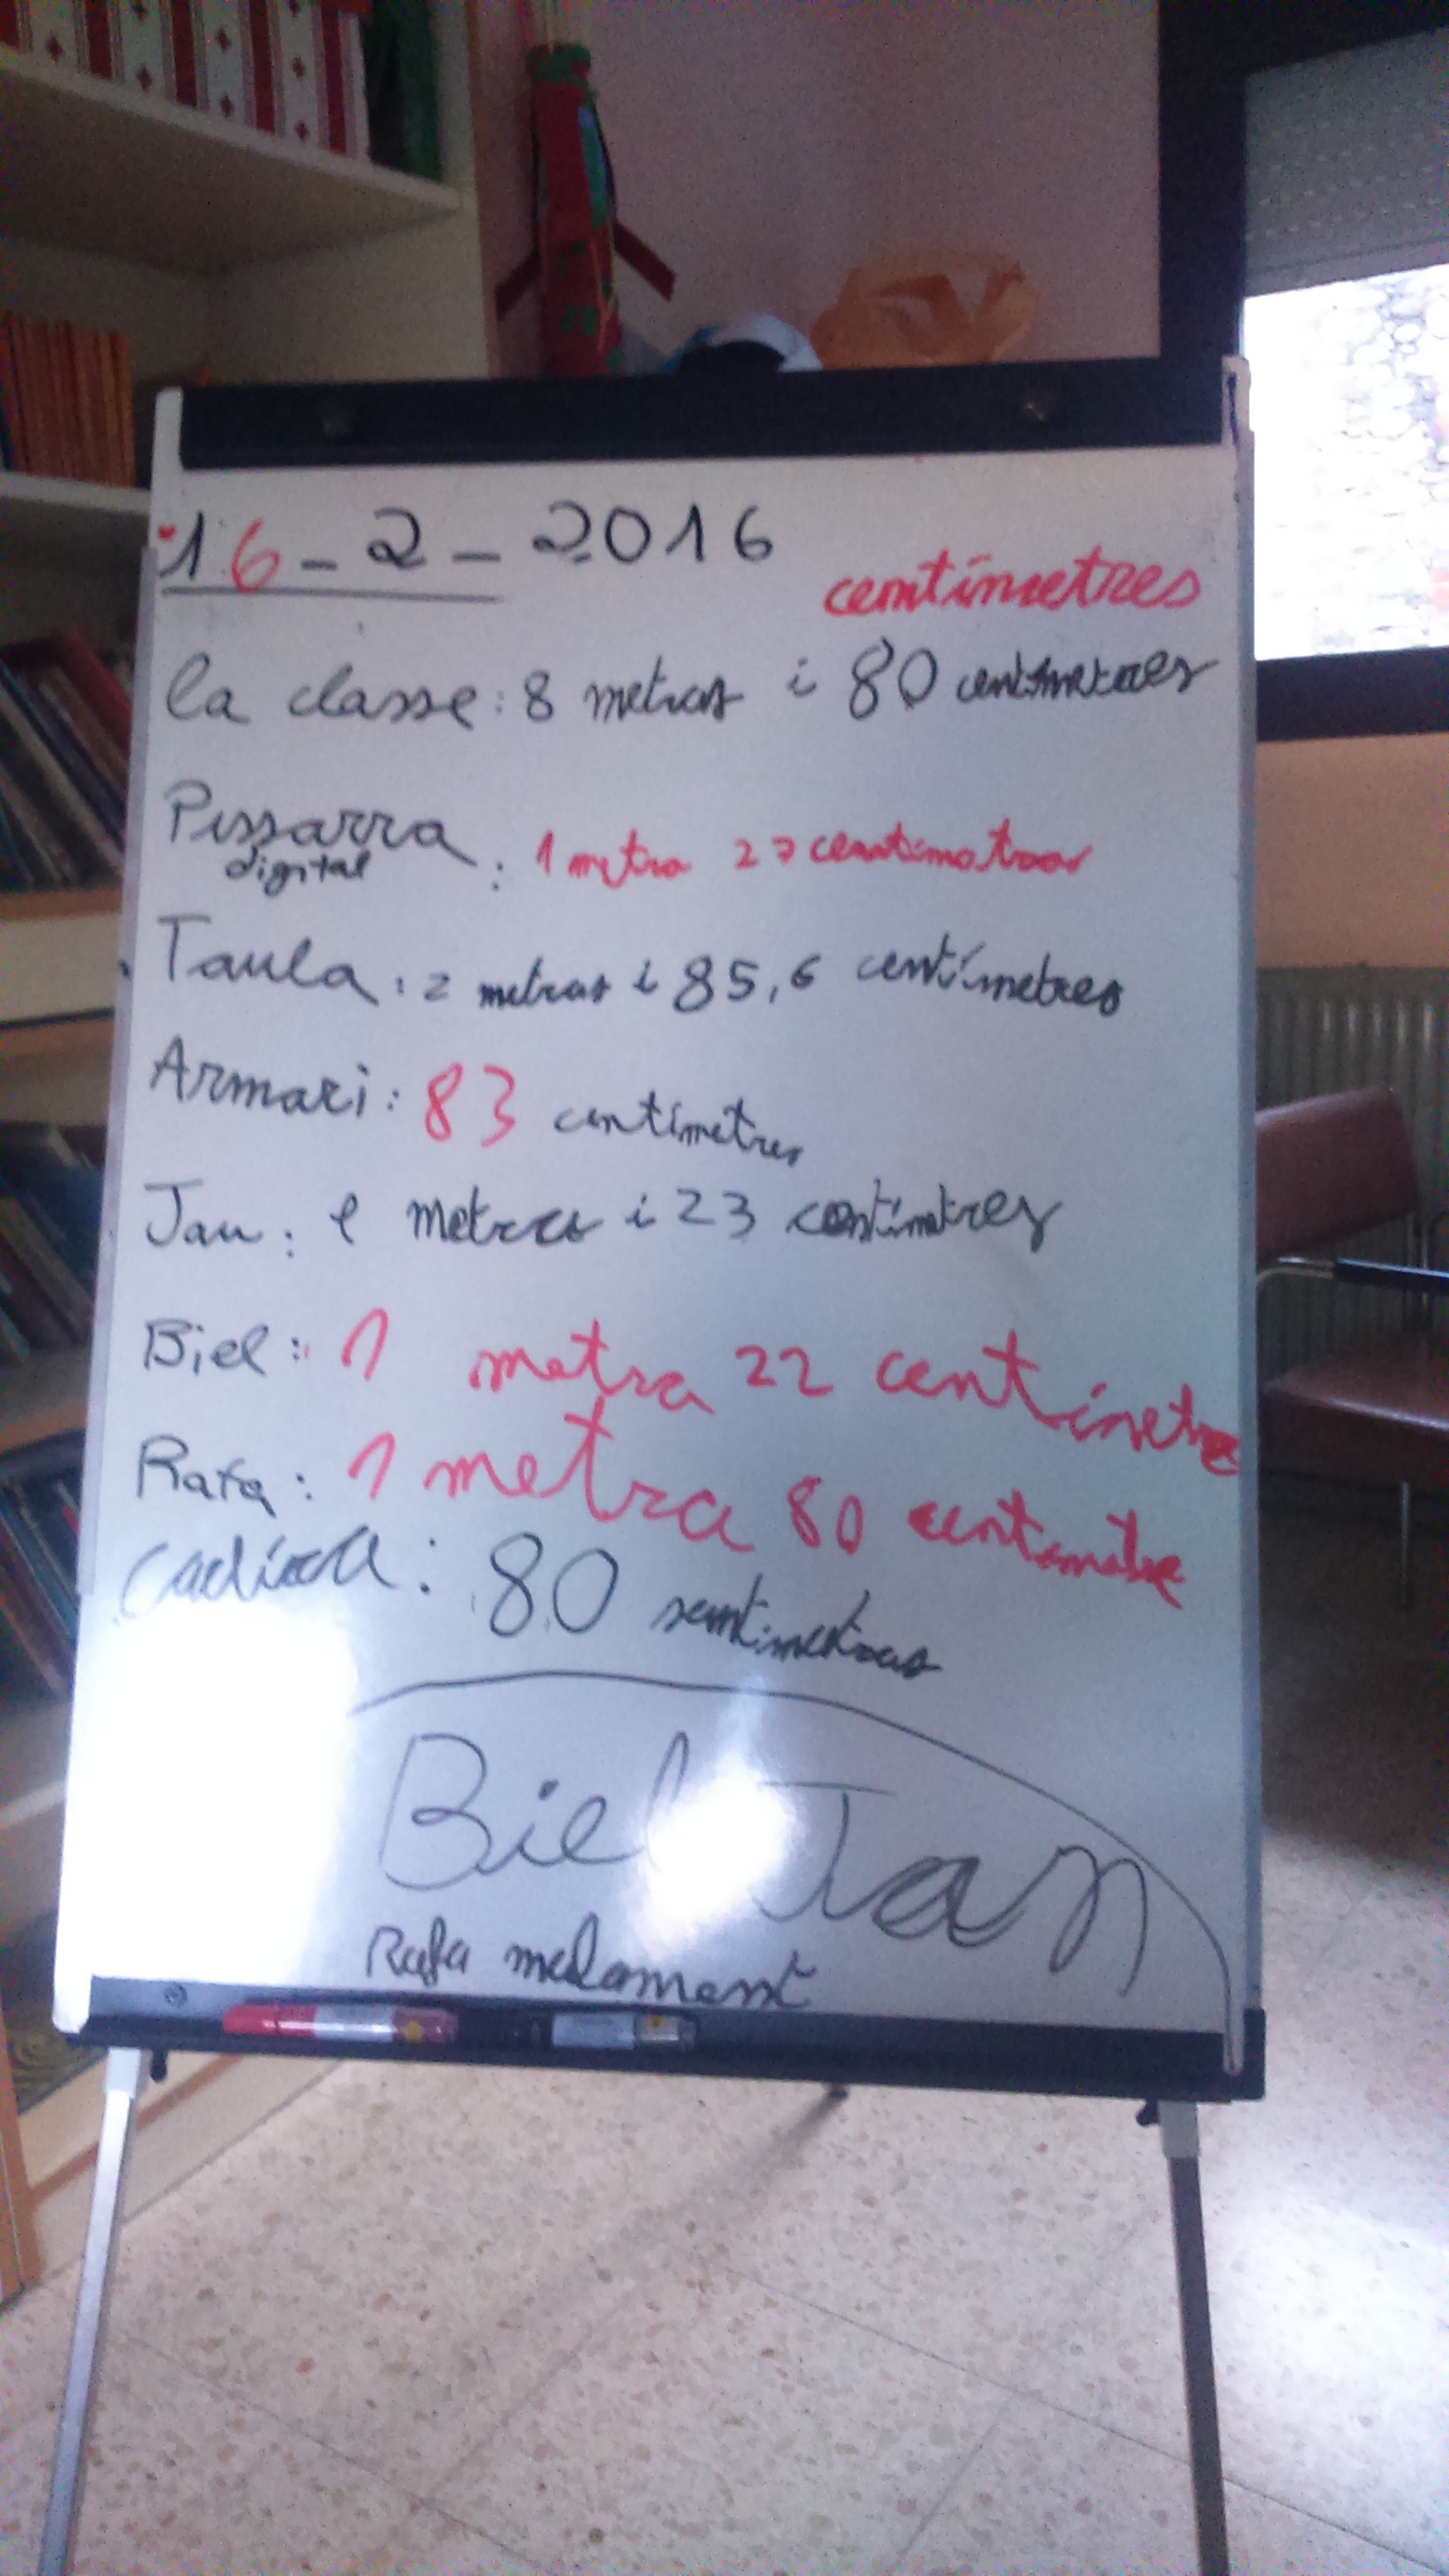 16-2-2016
centímetres
la classe: 8 metras i 80 centímetres
Pissarra digital: 1 metra 27 centimatras
Taula: 2 metras i 85,6 centímetres
Armari: 83 centímetres
Jan: 1 metra i 23 centímetres
Biel: 1 metra 22 centímetre
Rafa: 1 metra 80 centimetre
cadira: 80 sentimetras
Biel Jan
Rafa